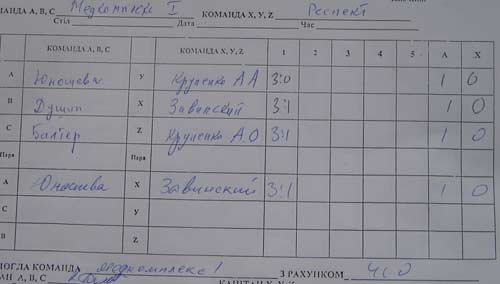 КОМАНДА А, В, С Медкомплекс I КОМАНДА X, У, Z Респект
Стіл Дата Час
КОМАНДА А, В, С КОМАНДА X, У, Z 1 2 3 4 5 А X
А Юношева У Круленко А А 3:0 1 0
В Душин X Завинский 3:1 1 0
С Балтер Z Круленко А.О 3:1 1 0
Пара Пара
А Юношева X Завинский 3:1 1 0
С У
В Z
МОГЛА КОМАНДА медкомплекс 1 З РАХУНКОМ 4:0
АН А, В, С КАПІТАН X, У, Z